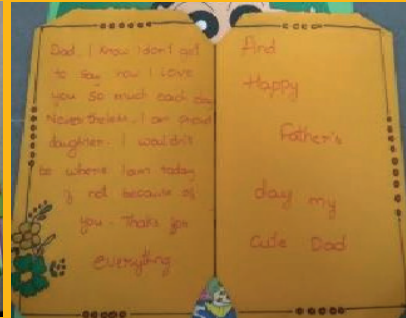 Dad, I Know I don't get
to say how I Love
you so much each day
Nevertheless, I am proud
daughter. I wouldn't
be where I am today
if not because of
you. Thaks for
everything
And
Happy
Father's
day my
cute Dad